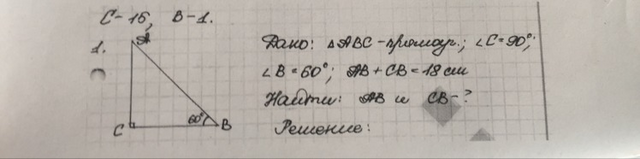 С-15, В-1.
1.
A
Дано: △ABC-прямоуг.; ∠C=90°;
∠B=60°; AB+CB=18 см
Найти: AB и CB-?
C 60° B
Решение: